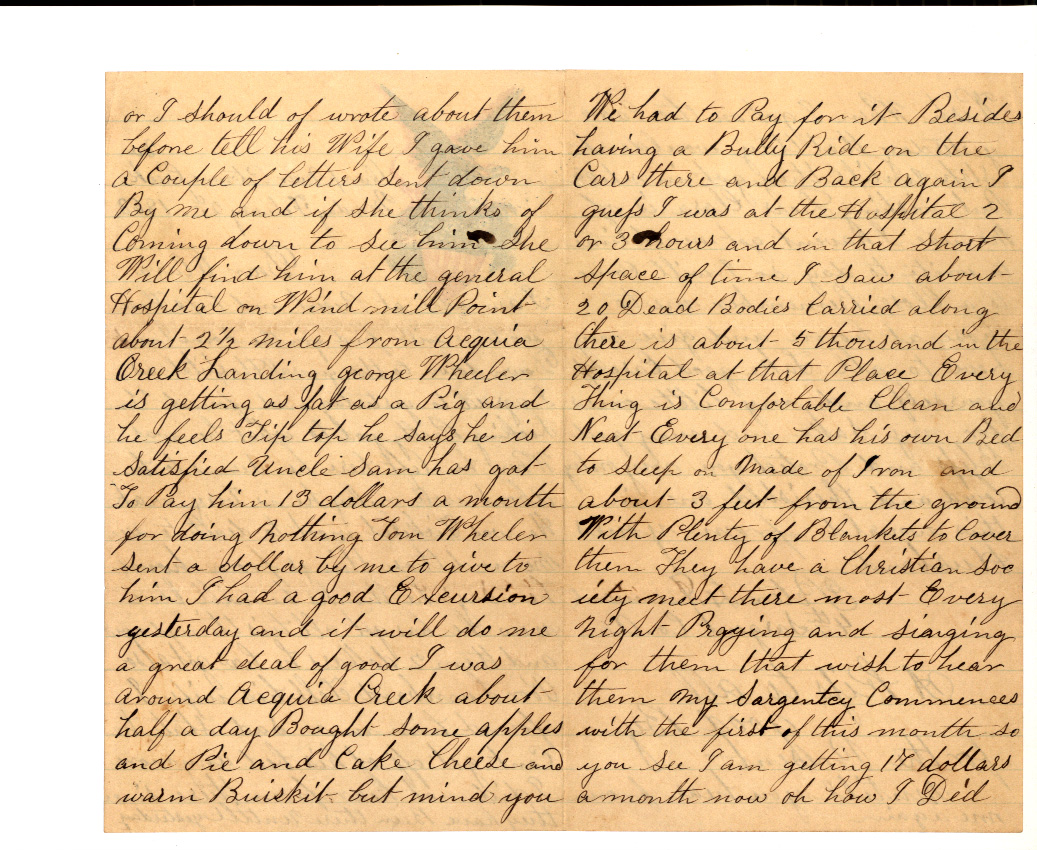 or I should of wrote about them
before tell his Wife I gave him
a Couple of letters sent down
By me and if she thinks of
Coming down to see him She
Will find him at the general
Hospital on Wind mill Point
about 2 1/2 miles from Acquia
Creek Landing george Wheeler
is getting as fat as a Pig and
he feels Tip top he says he is
satisfied Uncle Sam has got
To Pay him 13 dollars a month
for doing Nothing Tom Wheeler
sent a dollar by me to give to
him I had a good Excursion
yesterday and it will do me
a great deal of good I was
around Acquia Creek about
half a day Bought some apples
and Pie and Cake Cheese and
warm Buiskit but mind you
We had to Pay for it Besides
having a Bully Ride on the
Cars there and Back again I
guess I was at the Hospital 2
or 3 hours and in that short
space of time I saw about
20 Dead Bodies Carried along
there is about 5 thousand in the
Hospital at that Place Every
Thing is Comfortable Clean and
Neat Every one has his own Bed
to sleep on Made of Iron and
about 3 feet from the ground
With Plenty of Blankets to Cover
them They have a Christian Soc
iety meet there most Every
night Praying and singing
for them that wish to hear
them My Sargentcy Commences
with the first of this month so
you see I am getting 17 dollars
a month now oh how I Did